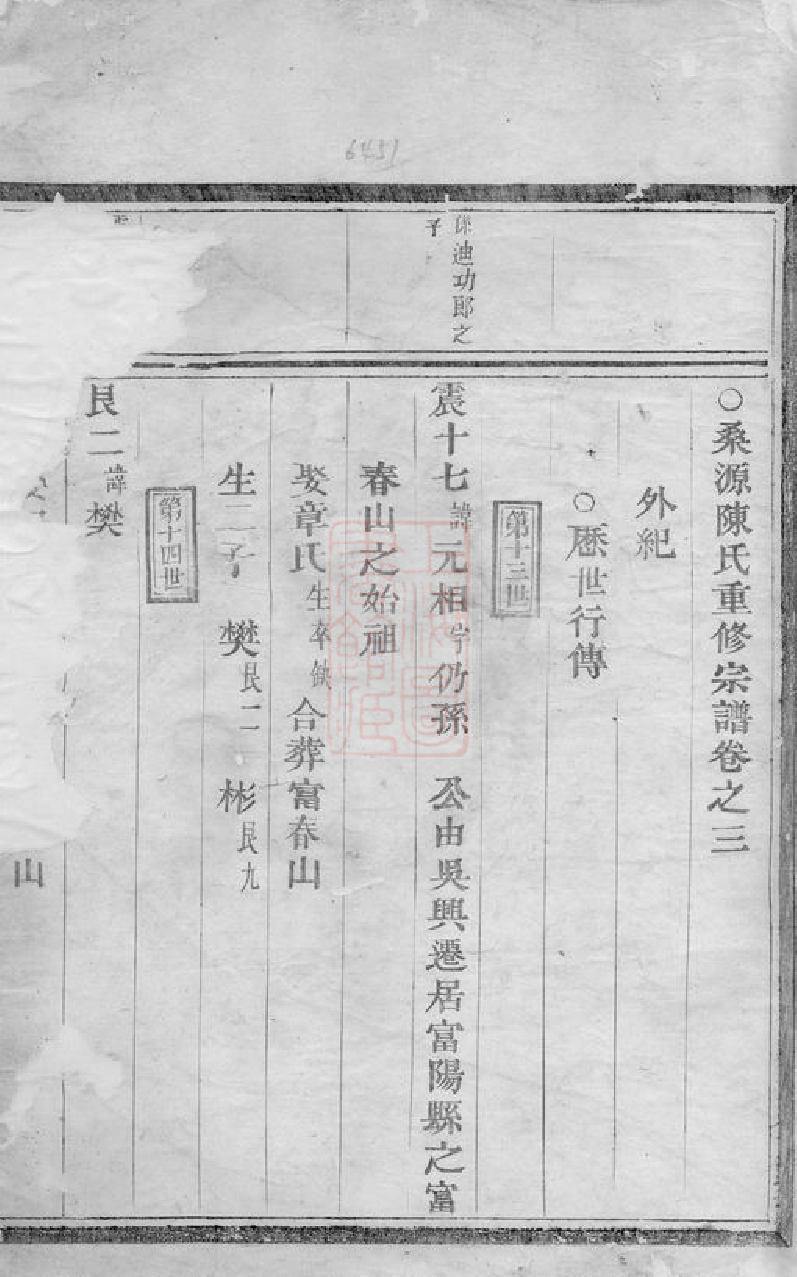 6451
○桑源陳氏重修宗譜卷之三
外紀
○歴世行傳
第十三世
迪功郎之
子
震十七諱元相字仍孫 公由吳興遷居富陽縣之富
春山之始祖
娶章氏生卒缺 合葬富春山
生二子 樊艮二 彬艮九
第十四世
艮二諱樊
山